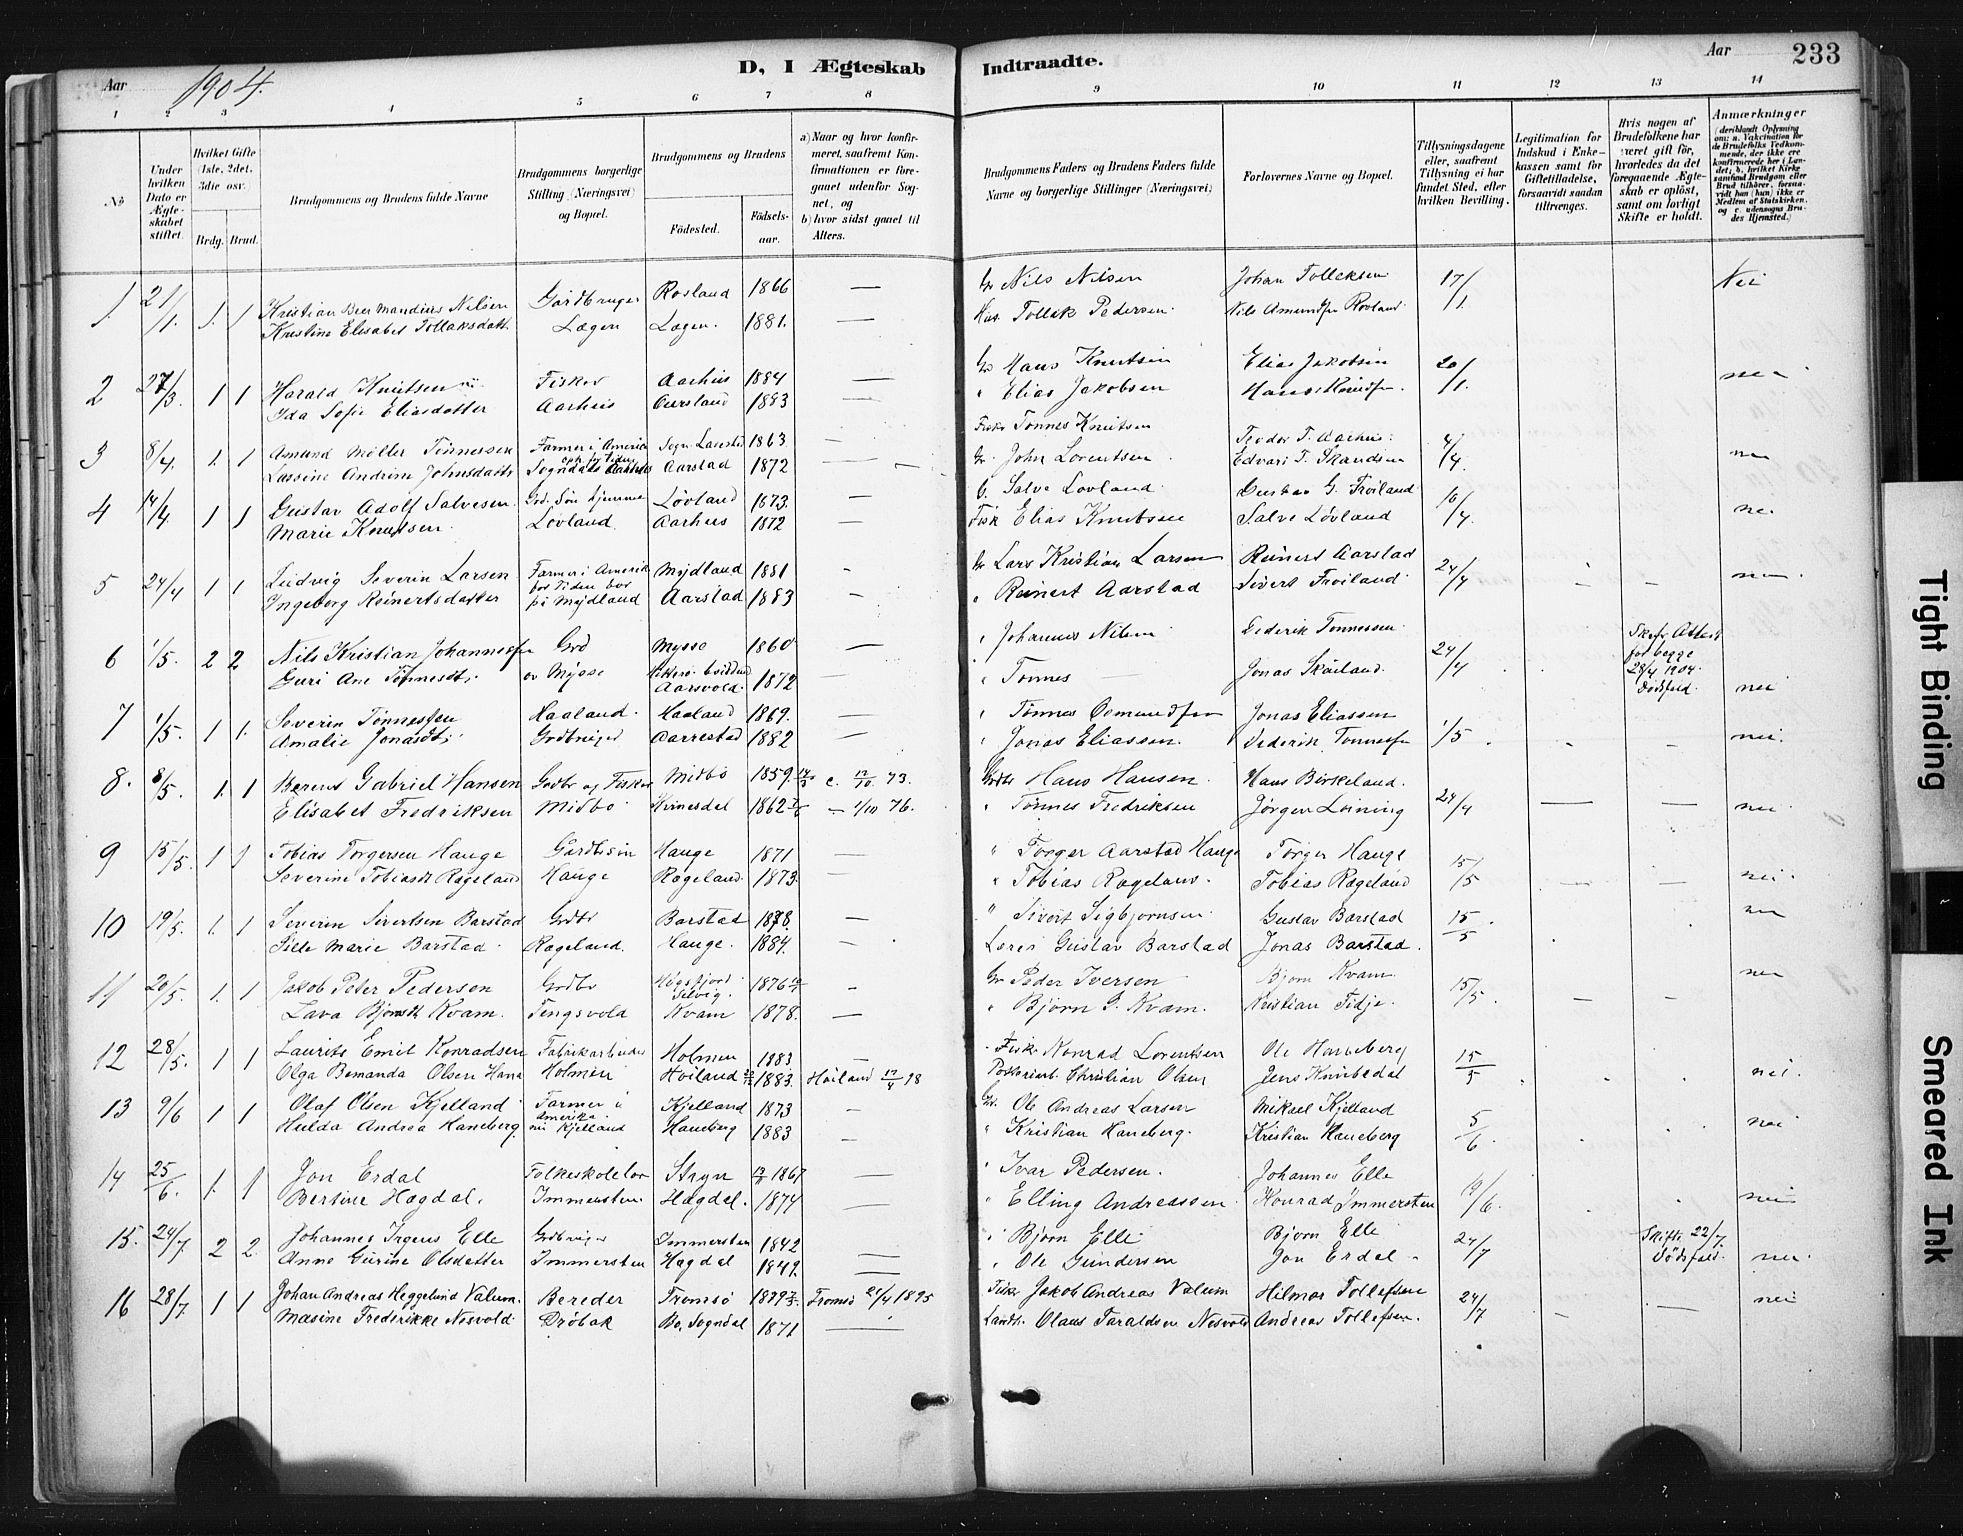 Aar 1904.
D, I Ægteskab Indtraadte.
Aar 233
1 2 3 4 5 6 7 8 9 10 11 12 13 14
No
Under hvilken Dato er Ægteskabet stiftet.
Hvilket Gifte (1ste, 2det, 3die osv.
Brdg. Brud.
Brudgommens og Brudens fulde Navne
Brudgommens borgerlige Stilling (Næringsvei) og Bopæl.
Brudgommens og Brudens
Födested.
Födsels-aar.
a) Naar og hvor konfirmeret, saafremt Konfirmationen er foregaaet udenfor Sognet, og
b) hvor sidst gaaet til Alters.
Brudgommens Faders og Brudens Faders fulde Navne og borgerlige Stillinger (Næringsvei)
Forlovernes Navne og Bopæl.
Tillysningsdagene eller, saafremt Tillysning ei har fundet Sted, efter hvilken Bevilling.
Legitimation for Indskud i Enkekassen samt for Giftetilladelse, forsaavidt saadan tiltrænges.
Hvis nogen af Brudefolkene har været gift før, hvorledes da det foregaaende Ægteskab er opløst, samt om lovligt Skifte er holdt.
Anmærkninger
(deriblandt Oplysning om: a. Vakcination for de Brudefolks Vedkommende, der ikke ere konfirmerede her i Landet; b. hvilket Kirkesamfund Brudgom eller Brud tilhører, forsaavidt han (hun) ikke er Medlem af Statskirken, og c. udensogns Brudes Hjemsted.)
1 21/1. 1. 1 Kristian Mandius Nilsen Gårdbruger Rosland 1866 — Gr Nils Nilsen Johan Tolleksen 17/1. Nei
Kristine Elisabet Tollaksdatt. Lægen Lægen. 1881. — Tollak Pedersen. Nils Rovland.
2 27/3. 1 1 Harald Knutsen Fisker Aarhus 1884 — Gr Hans Knutsen Elias Jakobsen 20/1. nei
Ida Sofie Eliasdatter Aarhus 1883 — " Elias Jakobsen
3 8/4. 1. 1 Amund Möller Tönnessen Farmer i Amerika 1863 — Fisk Tonnes Knutsen Teodor T. Aarhus. 4/4. nei
Lassine Andrine Johnsdatt. Aarstad 1872 — Gr. John Lorentsen Edvart T.
4 14/4 1 1 Gustav Adolf Salvesen Grd. Løvland 1873. — G. Salve Lovland Gustav G. Fröiland 10/4. nei
Marie Knutsen. Lovland Aarhus 1872 — Fisk Elias Knutsen Salve Løvland
5 24/4 1 1 Ludvig Severin Larsen Farmer i Amerik Mydland 1881 - Gr Lars Kristian Larsen Reinert Aarstad 24/4 nei
Ingeborg Reinertsdatter på Mydland Aarstad 1883 - " Reinert Aarstad Sivert Froiland
6 1/5. 2 2 Nils Kristian Johannessen Grd Mysse 1860 — " Johannes Nilsen Dederik Tonnessen 24/4 Skifte Attest for begge 28/4 1904. Dödsfald. nei
Guri Ane Tönnesdt. av Mysse Aarsvold 1872 — " Tonnes Jonas Skåiland.
7 1/5. 1 1. Severin Tönnessen Haaland. Haaland 1869. — " Tönnes Jonas Eliassen 1/5 nei.
Amalie Jonasdt. Aarrestad 1882 — " Jonas Eliassen. Dederik Tonnessen
8. 8/5. 1. 1 Berent Gabriel Hansen Grdbr og Fisker Midbö 1859. c. 12/10 73. Grdbr Hans Hansen. Hans Birkeland. 24/4 — — nei
Elisabet Fredriksen Midbö Kvinesdal 1862 — 1/10 76. " Tønnes Fredriksen Jörgen Leining
9 15/5. 1 1 Tobias Torgersen Hauge Gardbsön Hauge 1871 — " Torger Aarstad Hauge Torger Hauge 15/5 — — nei
Severine Tobiasdt Rageland Hauge Rageland. 1873. — " Tobias Rageland. Tobias Rageland
10 19/5. 1. 1 Severin Sivertsen Barstad Grdbr Barstad 1878. — " Sivert Sigbjornsen. Gustav Barstad 15/5 nei
Sille Marie Barstad. Rageland. Hauge. 1884. - Gustav Barstad Jonas Barstad.
11 20/5. 1. 1 Jakob Peter Pedersen Grdbr Högsfjord 1876 - Gr Peder Iversen Bjorn Kvam. 15/5. — — nei
Lava Bjönsdt. Kvam. Tengsvold Kvam 1878. - " Björn G. Kvam. Kristian Tidje.
12 28/5. 1 1 Laurits Emil Konradsen Fabrikarbeider Holmen 1883. — Fisk Konrad Lorentsen Ole Haneberg 15/5 nei.
Olga Bernanda Olsen Holmen Höiland 1883. Höiland 17/4 98 Christian Olsen Jens Knibedal
13 9/6 1 1 Olaf Olsen Kjelland Farmer i Amerika. Kjelland 1873 — Gr. Ole Andreas Larsen Mikael Kjelland 5/6. nei
Hulda Andrea Haneberg. nu Kjelland Haneberg 1883 — " Kristian Haneberg. Kristian Haneberg
14 25/6. 1. 1 Jon Erdal Folkeskolelær Stryn 1867 — " Ivar Pedersen. Johannes Elle 19/6. nei
Bertine Hagdal. Immersten. Hagdal. 1874 — " Elling Andreassen. Konrad Immersten
15. 24/7 2 2. Johannes Elle Grdbruger Immersten 1842 — " Bjørn Elle Bjorn Elle 24/7 Skifte 22/7. Dödsfald. nei
Anne Gurine Olsdatter Immersten Hagdal 1849. — " Ole Gundersen Jon Erdal.
16 28/7 1 1 Johan Andreas Heggelund Valum. Bereder Tromsö 1879 Tromsö 21/4 1895 Fisk Jakob Andreas Valum Hilmar Tollefsen 24/7 - — nei
Masine Frederikke Nesvold. Dröbak Sogndal 1871 — Landh. Olaus Taraldsen Nesvold Andreas Tollefsen.
Tight Binding
Smeared Ink